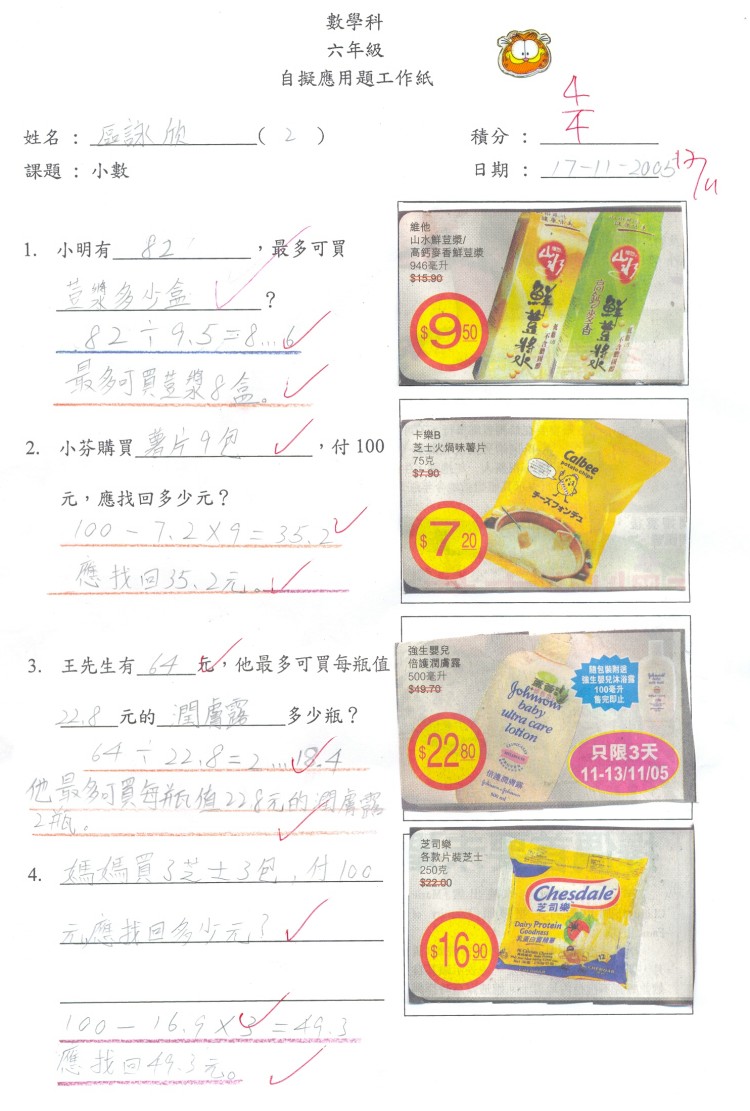 數學科
六年級
自擬應用題工作紙
4/4
姓名 : 區詠欣 ( 2 )
積分 :
課題 : 小數
日期 : 17-11-2005
17/11
1. 小明有 82 ,最多可買
荳漿多少盒 ?
82÷9.5=8...6
最多可買荳漿8盒。
維他
山水鮮荳漿/
高鈣麥香鮮荳漿
946毫升
$15.90
$9.50
山水
鮮荳漿
山水
高鈣麥香
鮮荳漿
2. 小芬購買 薯片9包 ,付100
元,應找回多少元?
100-7.2×9=35.2
應找回35.2元。
卡樂B
芝士火煱味薯片
75克
$7.90
$7.20
Calbee
potato chips
チーズフォンデュ
3. 王先生有 64 元,他最多可買每瓶值
22.8 元的 潤膚露 多少瓶?
64÷22.8=2...18.4
他最多可買每瓶值22.8元的潤膚露
2瓶。
強生嬰兒
倍護潤膚露
500毫升
$49.70
$22.80
Johnson's
baby
ultra care
lotion
倍護潤膚露
隨包裝附送
強生嬰兒沐浴露
100毫升
售完即止
只限3天
11-13/11/05
4. 媽媽買了芝士3包,付100
元,應找回多少元?
100-16.9×3=49.3
應找回49.3元。
芝司樂
各款片裝芝士
250克
$22.00
$16.90
Chesdale
芝司樂
Dairy Protein
Goodness
乳蛋白最精華